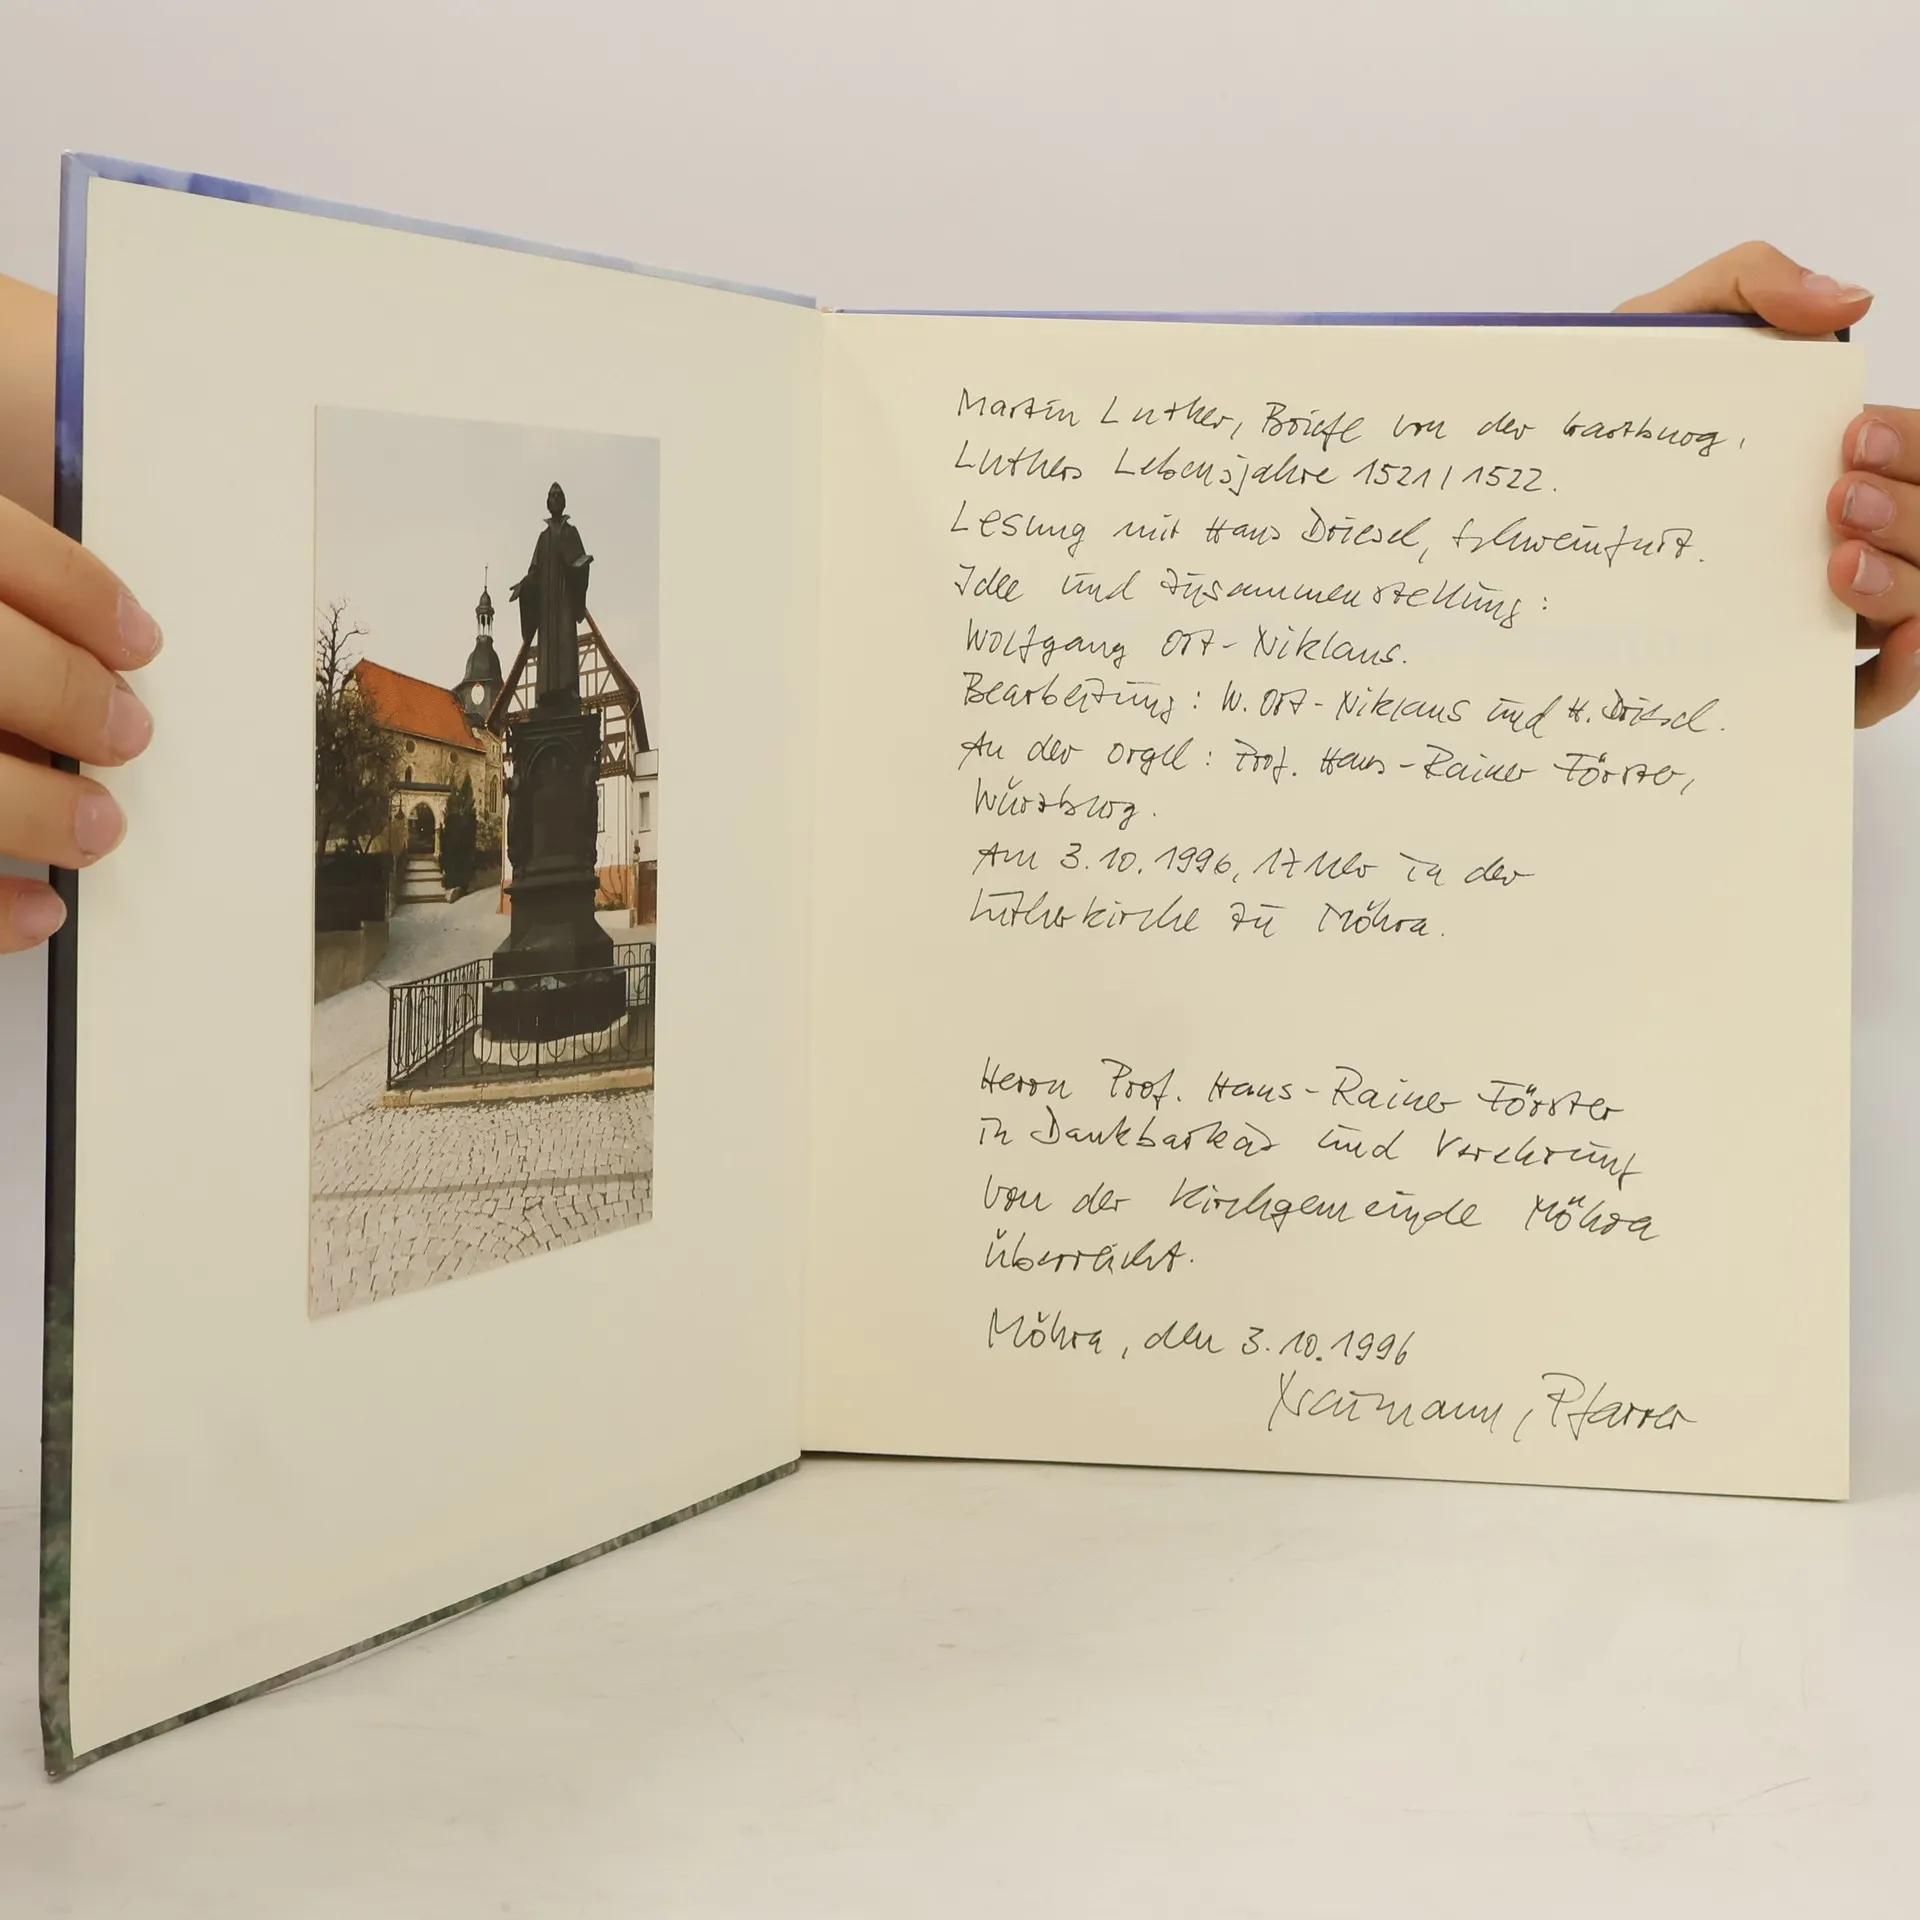 Martin Luther, Briefe von der Wartburg,
Luthers Lebensjahre 1521/1522.
Lesung mit Hans Driesel, Schweinfurt.
Idee und Zusammenstellung:
Wolfgang Ort-Niklaus.
Bearbeitung: W. Ort-Niklaus und H. Driesel.
An der Orgel: Prof. Hans-Rainer Förster,
Würzburg.
Am 3.10.1996, 17 Uhr in der
Lutherkirche zu Möhra.
Herrn Prof. Hans-Rainer Förster
in Dankbarkeit und Verehrung
von der Kirchgemeinde Möhra
überreicht.
Möhra, den 3.10.1996
, Pfarrer